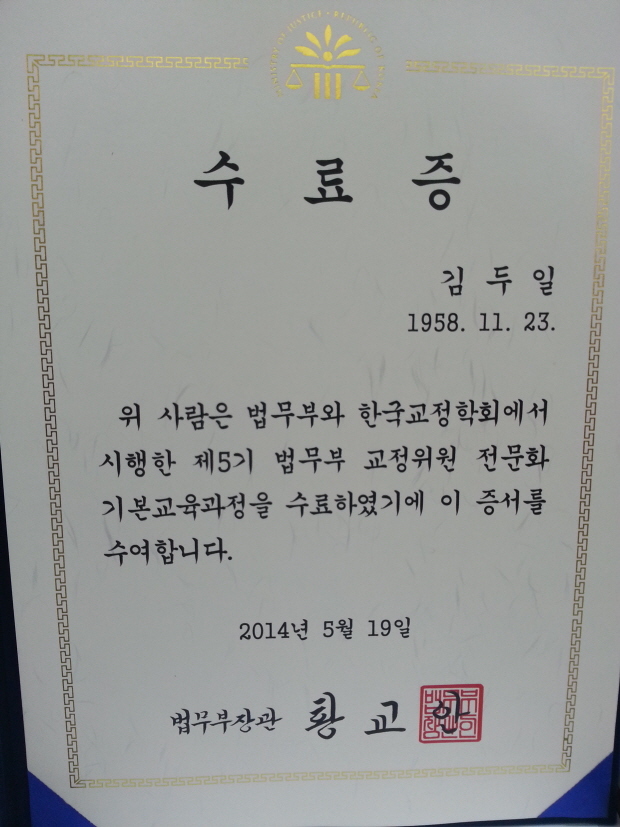 MINISTRY OF JUSTICE · REPUBLIC OF KOREA
수 료 증
김 두 일
1958. 11. 23.
위 사람은 법무부와 한국교정학회에서
시행한 제5기 법무부 교정위원 전문화
기본교육과정을 수료하였기에 이 증서를
수여합니다.
2014년 5월 19일
법무부장관 황 교 안